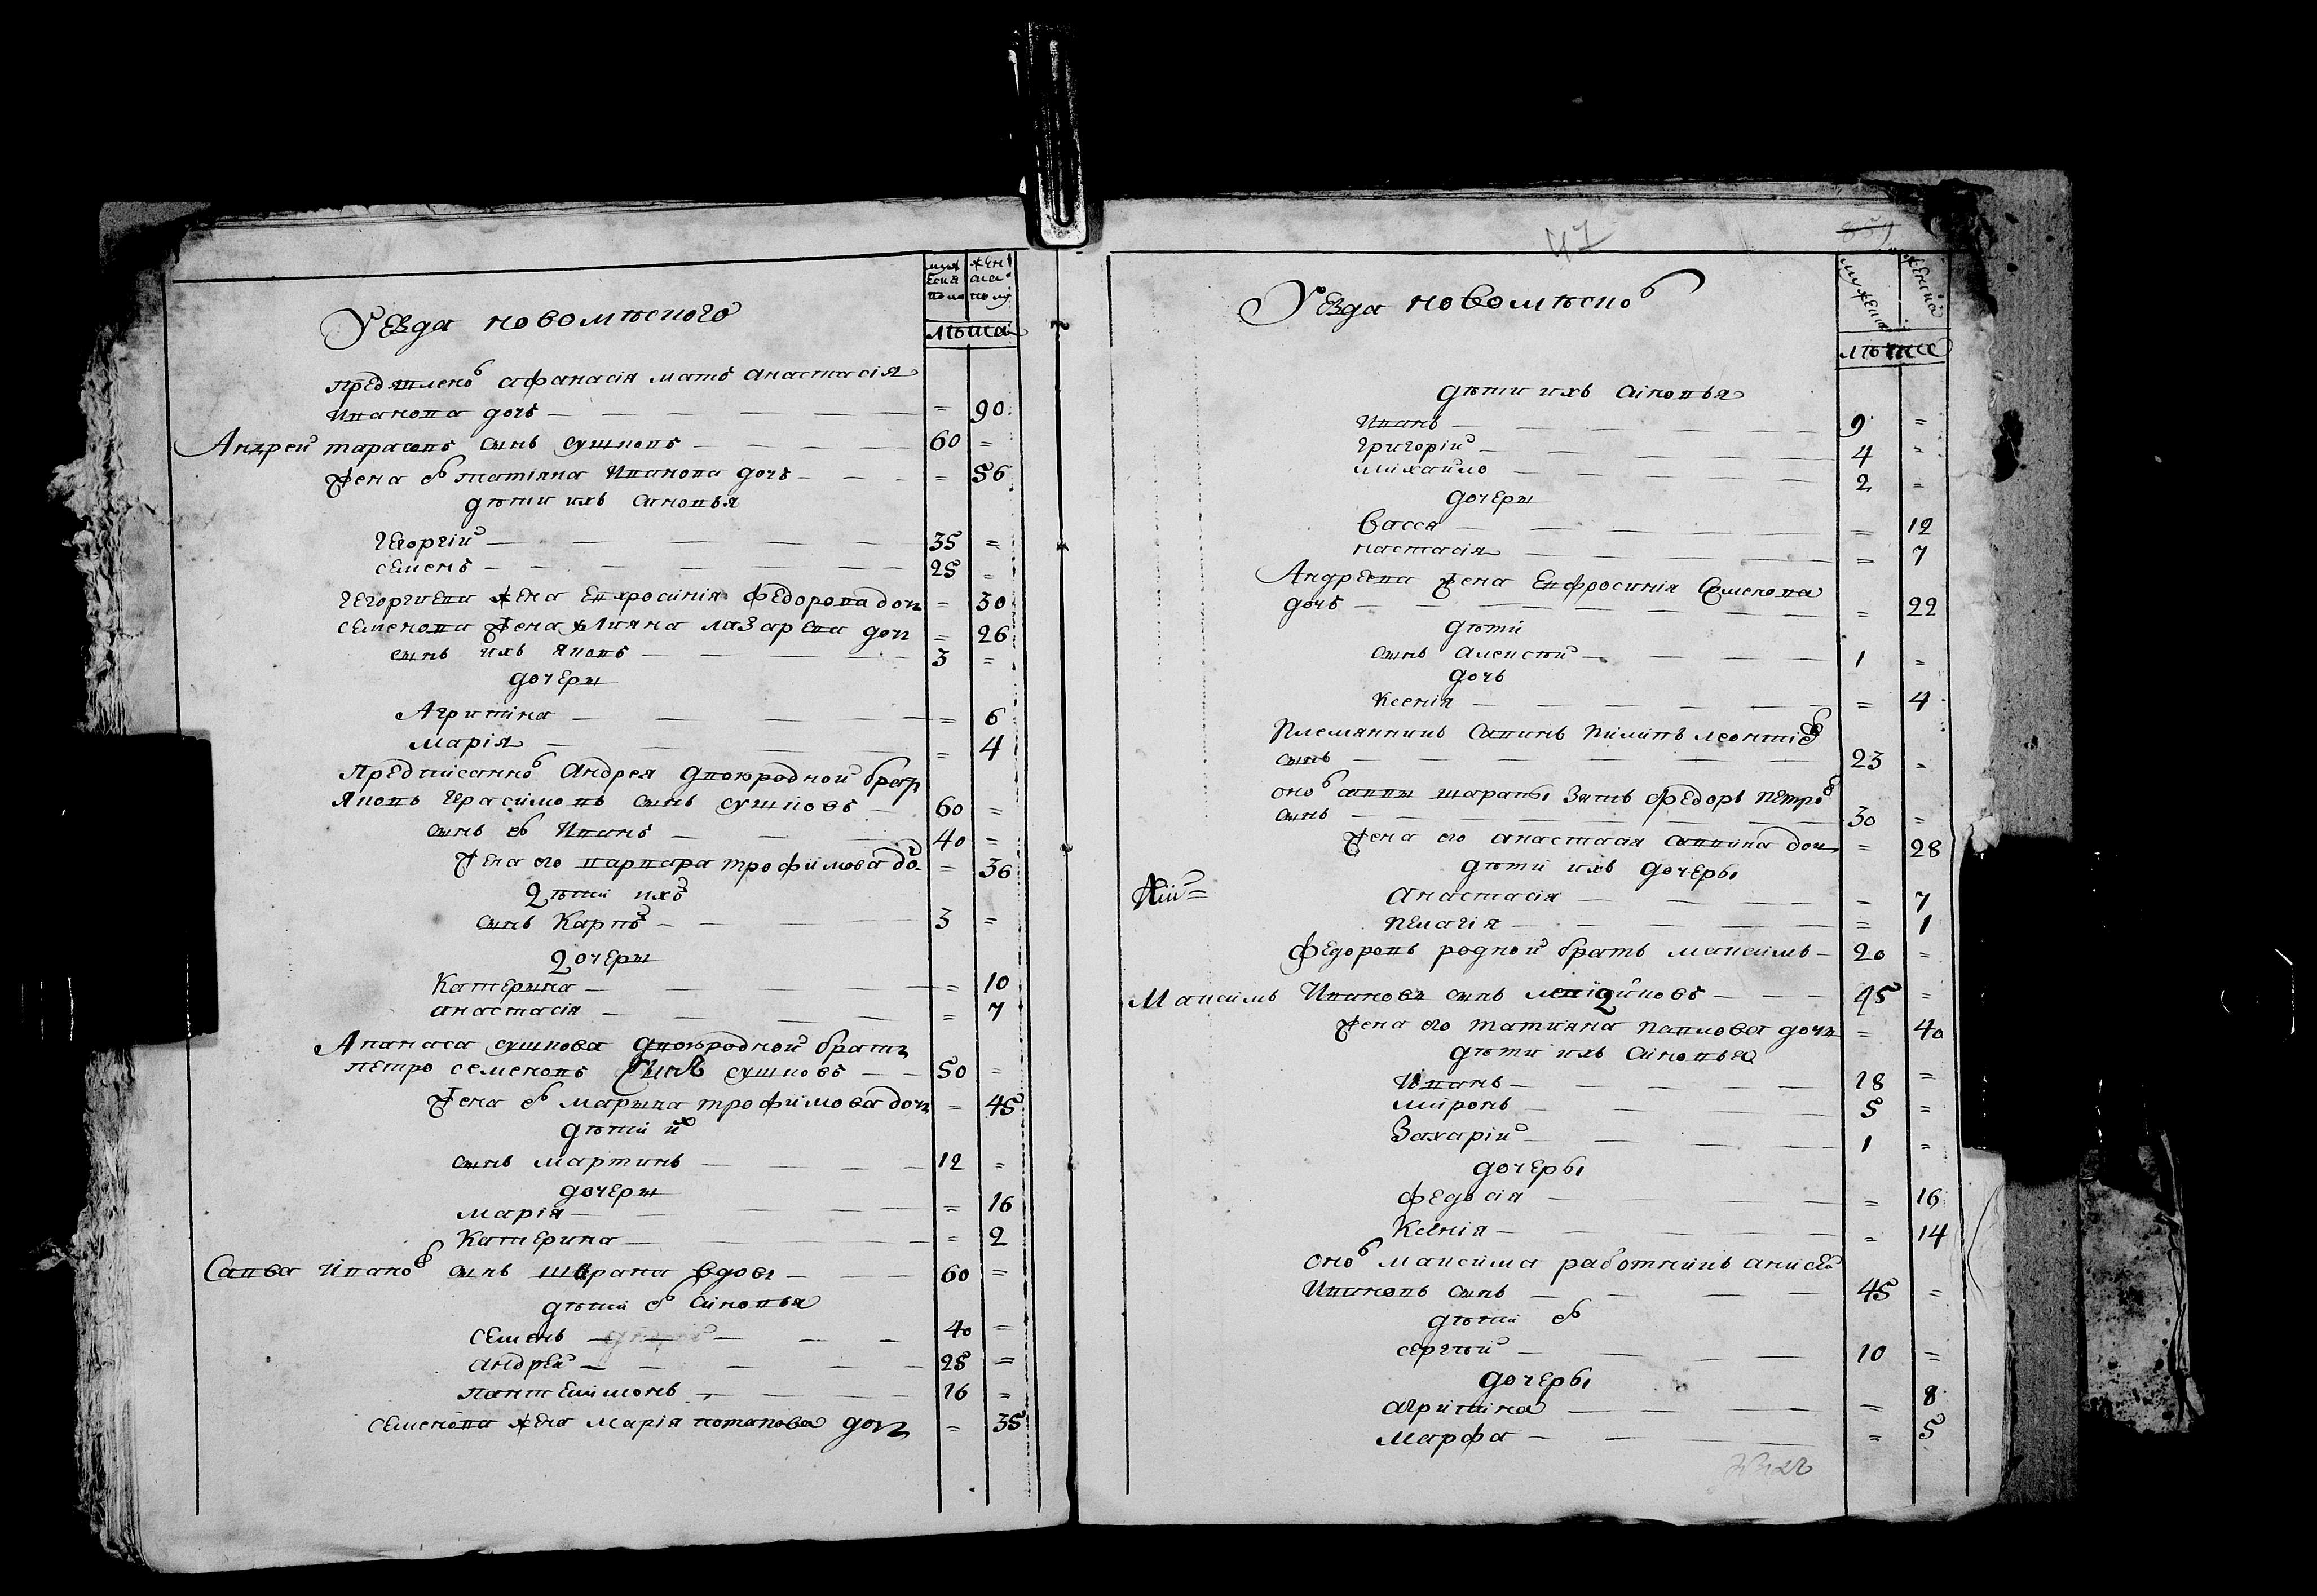 Уезда новомѣского
мужеска полу
женска полу
лѣта
предявлено афанасія мать анастасія
Иванова дочь 90
Андрей тарасовъ сынъ сушковъ 60
жена ео татіяна Иванова дочь 56
дѣти ихъ синовья
Георгий 35
семенъ 25
Георгиева жена Евхросинія федорова дочь 30
семенова жена улияна лазарева доч 26
сынъ ихъ яковъ 3
дочеры
Агрипина 6
Марія 4
Предписанно Андрея двоюродной брат
яковъ Герасимовъ сынъ сушковъ 60
сынъ ео Иванъ 40
жена его варвара трофимова до 36
дѣти ихъ
сынъ Карпъ 3
дочеры
Катерына 10
анастасія 7
Апанаса сушкова двоюродной братъ
петро семеновъ сынъ сушковъ 50
жена ео марына трофимова дочь 45
дѣти их
сынъ мартинъ 12
дочеры
марія 16
Катерина 2
Савва Ивано сынъ шарапа вдовы 60
дѣти ео синовья
семенъ 40
андрей 25
пантелимонъ 16
семенова жена марія потапова доч 35
47
859
Уезда новомѣско
мужеска
женска
лѣта
дѣти ихъ синовья
Иванъ 9
Григорій 4
михайло 2
дочеры
Васса 12
настасія 7
Андреева жена Евфросинія Семенова
дочь 22
дѣти
сынъ алексѣй 1
дочь
Ксенія 4
Племянникъ савинъ пилипъ леонтіе
сынъ 23
оно саввы шарапы зять федоръ петро
сынъ 30
жена его анастасия саввина доч 28
дѣти ихъ дочеры
анастасія 7
пелагія 1
федоровъ родной братъ максимъ 20
Максимъ Ивановъ сынъ 45
жена его татияна павлова дочь 40
дѣти ихъ синовья
Иванъ 18
миронъ 5
Захарій 1
дочеры
федосія 16
Ксенія 14
оно максима работникъ анисей
Ивановъ сынъ 45
дѣти ео
сергѣй 10
дочеры
агрипина 8
марфа 5